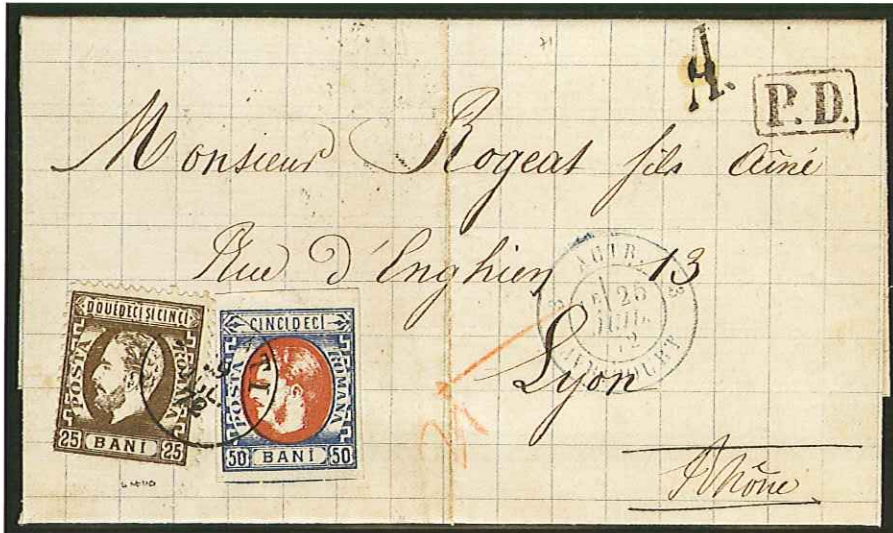 A.
P.D.
Monsieur Rogeat fils aîné
Rue d'Enghien 13
Lyon
Rhône
AUTR.
3 3
25
JUIL.
72
DOUĔDECI SI CINCI
POSTA ROMANA
25 BANI 25
CINCIDECI
POSTA ROMANA
50 BANI 50